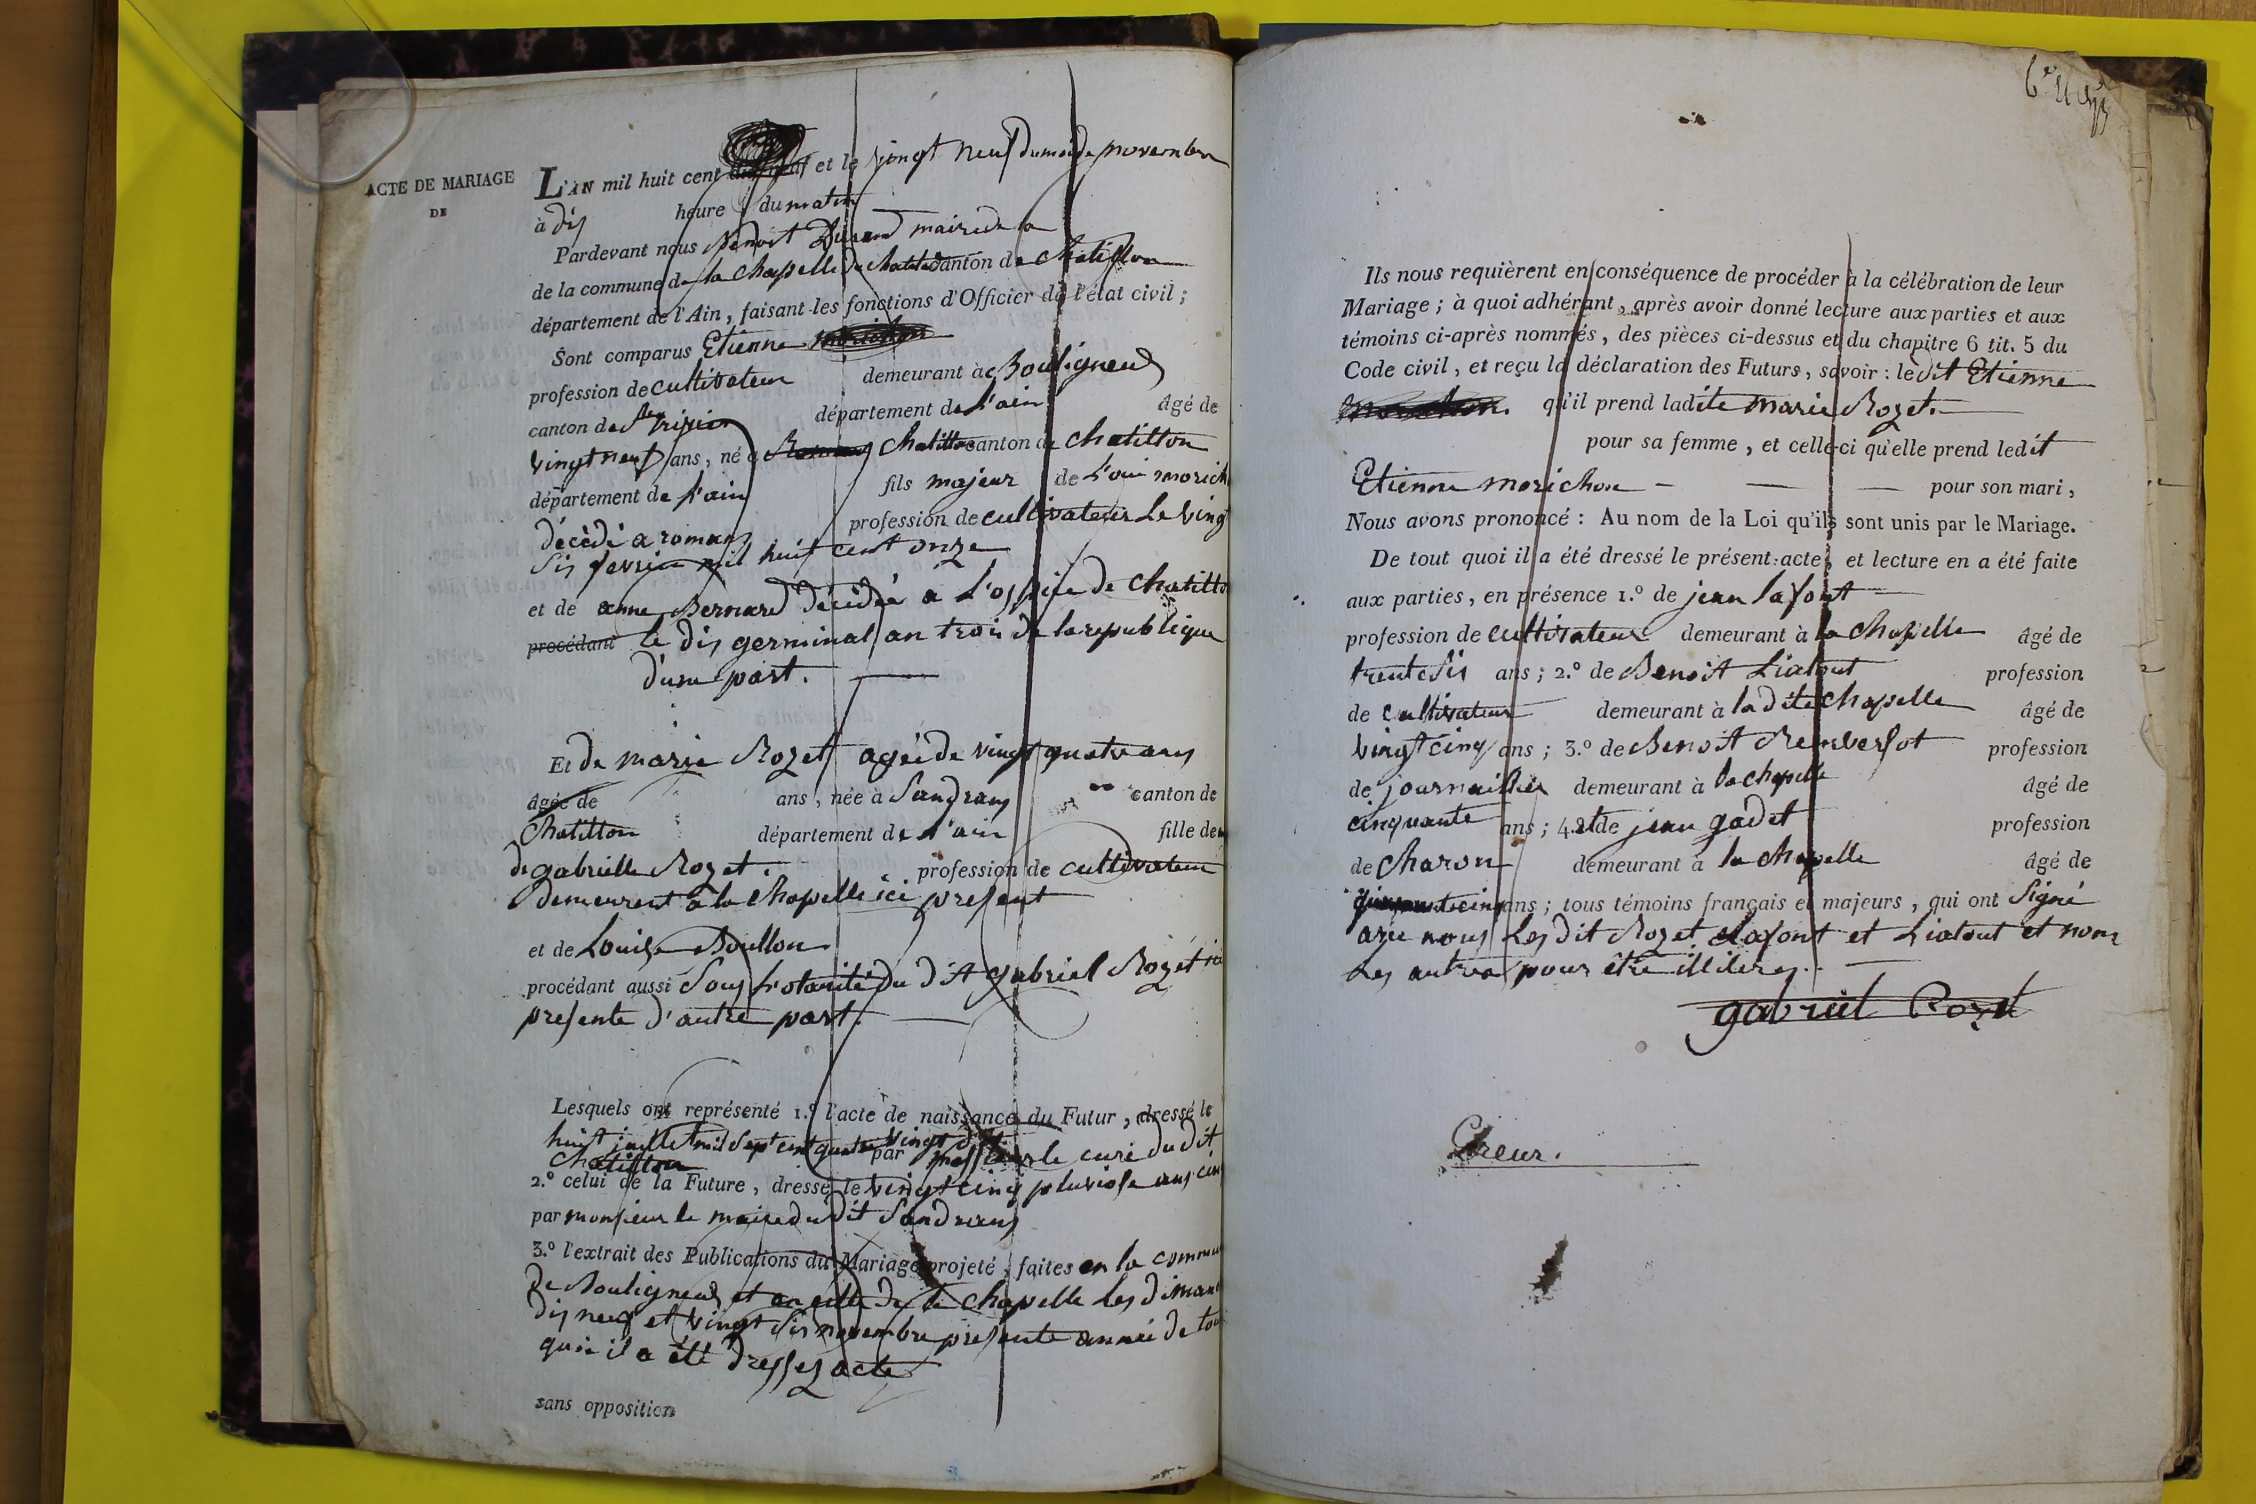 ACTE DE MARIAGE
DE
L'AN mil huit cent et le vingt neuf du mois de novembre
à dix heure du matin
Pardevant nous Benoit Durand maire de la
de la commune de la chapelle du chatelard canton de chatillon
département de l'Ain, faisant les fonctions d'Officier de l'état civil ;
Sont comparus Etienne morichon
profession de cultivateur demeurant à Bouligneux
canton de St trivier département de l'ain âgé de
vingt neuf ans, né à Romans chatillon canton de chatillon
département de l'ain fils majeur de L'oui morich
décédé a romans profession de cultivateur Le ving
six fevrier mil huit cent onze
et de anne Bernard décédée a L'ospice de chatillon
procédant le dix germinal an trois de la republique
d'une part.
Et de marie Rozet agée de vingt quatre ans
âgée de ans, née à Sandrans canton de
chatillon département de l'ain fille de
de gabrielle Rozet. profession de cultivateur
demeurent a la chapelle ici present
et de Louise Boullon
procédant aussi sous l'otorité du dit gabriel Rozet ici
presente d'autre part.
Lesquels ont représenté 1.º l'acte de naissance du Futur, dressé le
huit juillet mil sept cent quatre vingt dix par messieur le curé du dit
chatillon
2.º celui de la Future, dressé le vingt cinq pluviose ans cinq
par monsieur le maire du dit Sandrans
3.º l'extrait des Publications du Mariage projeté, faites en la commun
De Bouligneux et en celle de la chapelle Les dimanc
dix neuf et vingt six novembre presente année de tou
quoi il a été dressez acte
sans opposition
Ils nous requièrent en conséquence de procéder à la célébration de leur
Mariage ; à quoi adhérant, après avoir donné lecture aux parties et aux
témoins ci-après nommés, des pièces ci-dessus et du chapitre 6 tit. 5 du
Code civil, et reçu la déclaration des Futurs, savoir : ledit Etienne
morichon. qu'il prend ladite marie Rozet.
pour sa femme, et celle-ci qu'elle prend ledit
Etienne morichon pour son mari,
Nous avons prononcé : Au nom de la Loi qu'ils sont unis par le Mariage.
De tout quoi il a été dressé le présent acte, et lecture en a été faite
aux parties, en présence 1.º de jean lafont
profession de cultivateur demeurant à la chapelle âgé de
trente six ans ; 2.º de Benoit Liatout profession
de cultivateur demeurant à la dite chapelle âgé de
vingt cinq ans ; 3.º de Benoit profession
de journaillier demeurant à la chapelle âgé de
cinquante ans ; 4.º et de jean gadet profession
de charon demeurant à la chapelle âgé de
ans ; tous témoins français et majeurs, qui ont signé
avec nous Les dit Rozet Lafont et Liatout et nom
Les autres pour être illiteres.
gabriel Rozet
Ereur.